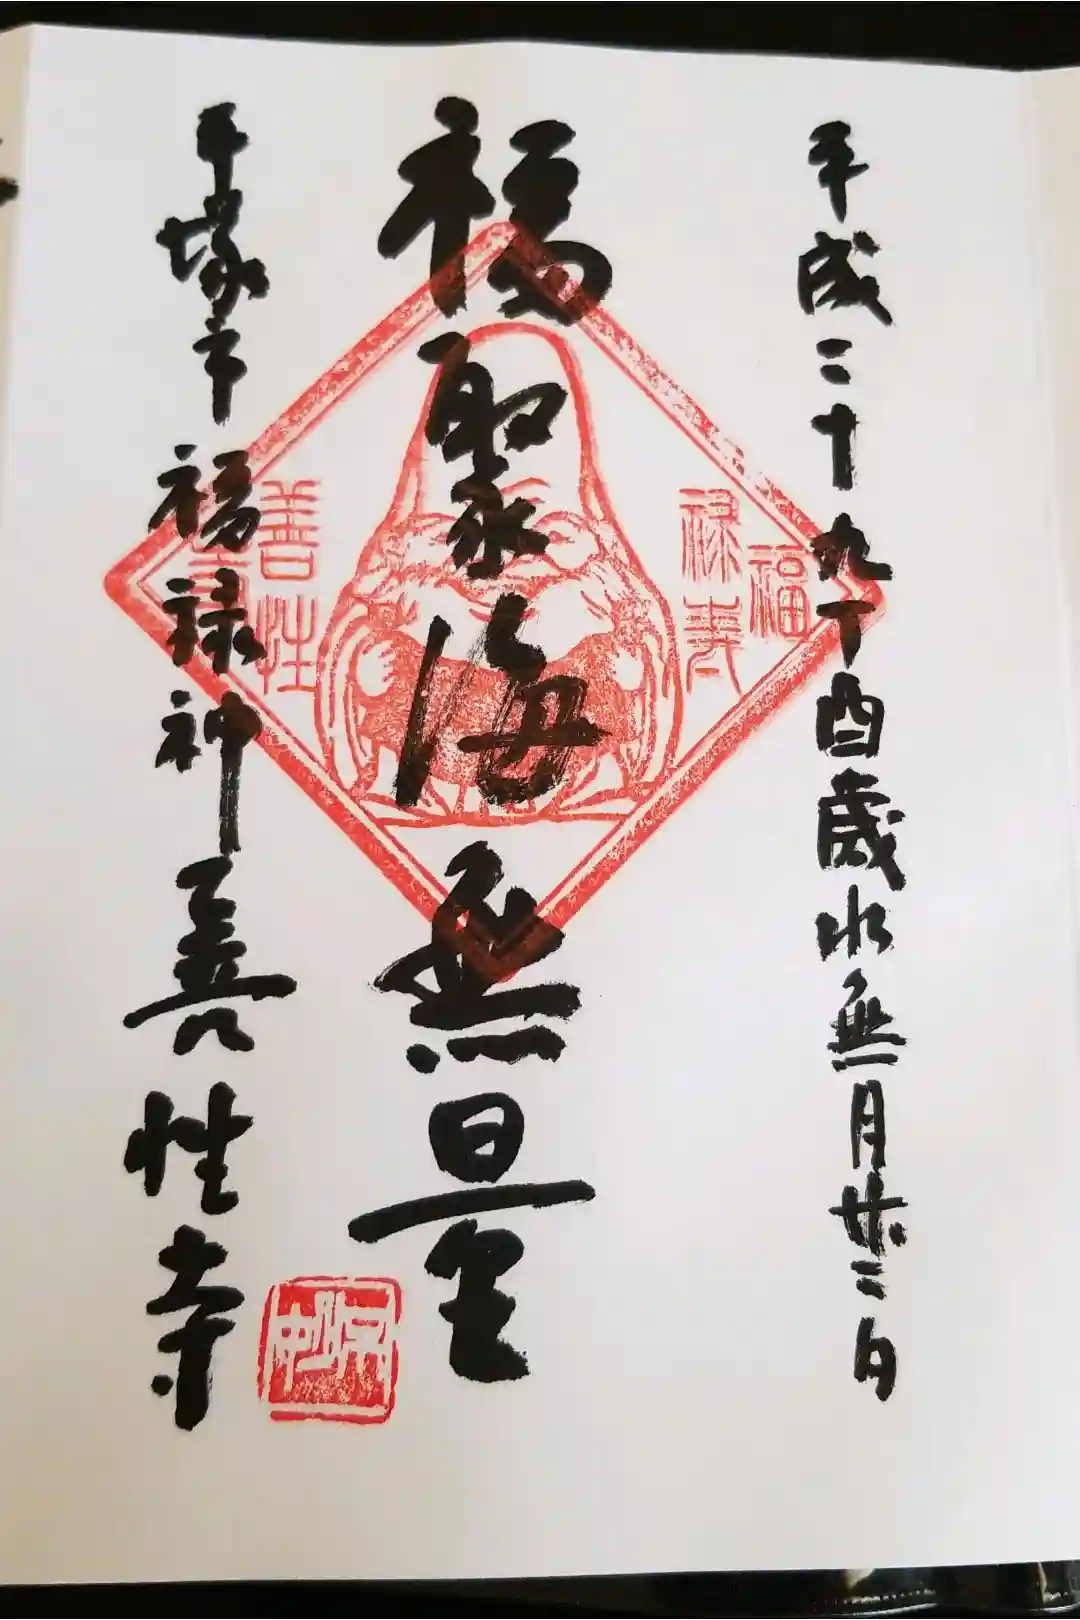 平成二十九丁酉歳水無月廿二日
福聚海無量
福
禄寿
善性
寺
平塚市 福禄神 善性寺